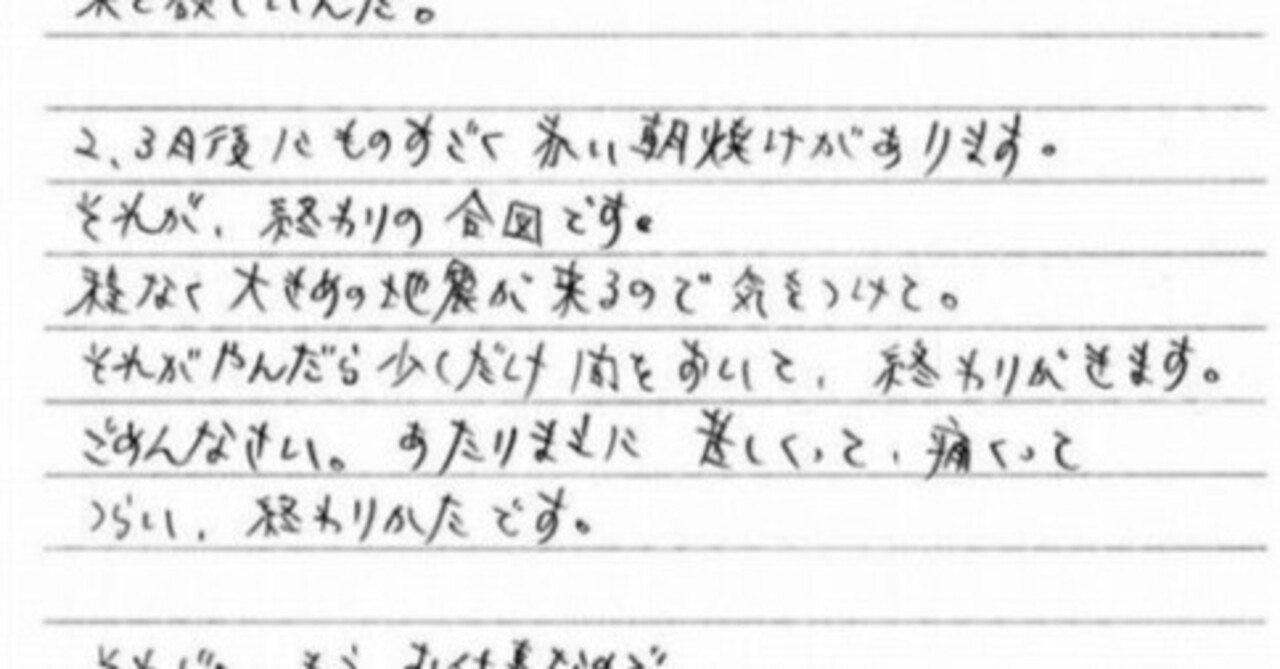 2、3日後にものすごく赤い朝焼けがあります。
それが、終わりの合図です。
程なく大きめの地震が来るので気をつけて。
それがやんだら少くだけ間をおいて、終わりがきます。
ごめんなさい。あたりまえに苦しくって、痛くって
つらい、終わりかたです。